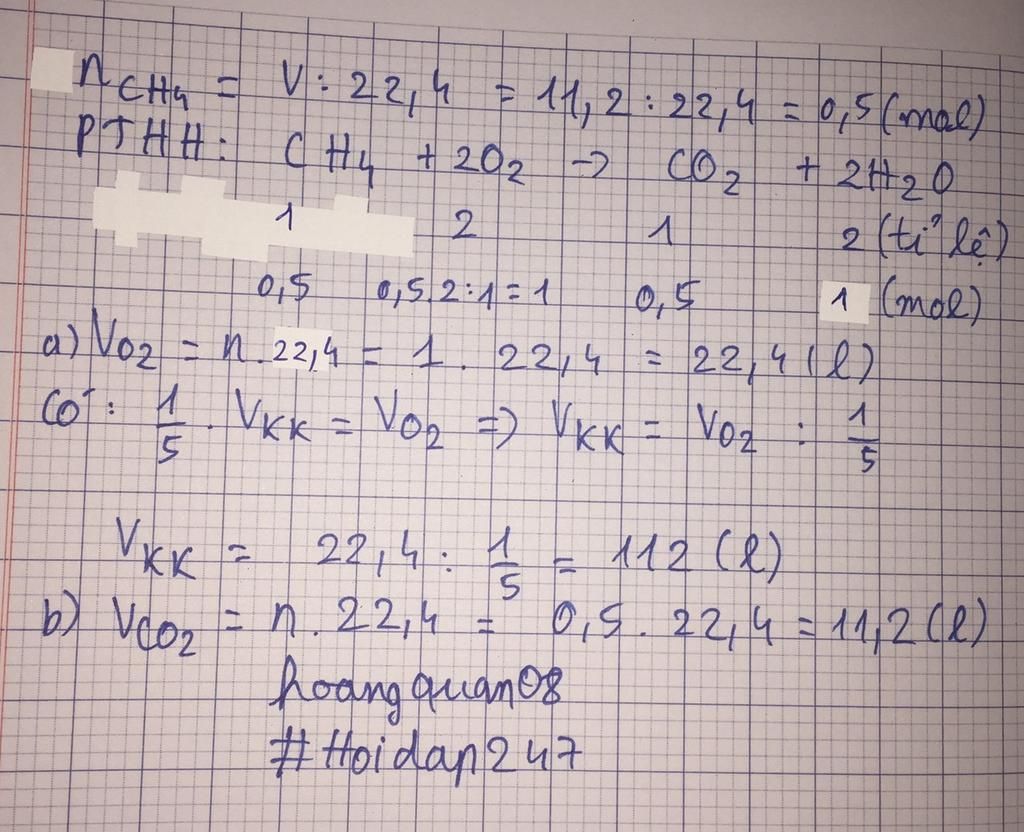 n CH4 = V : 22,4 = 11,2 : 22,4 = 0,5 (mol)
PTHH: CH4 + 2O2 -> CO2 + 2H2O
1 2 1 2 (tỉ lệ)
0,5 0,5.2:1=1 0,5 1 (mol)
a) VO2 = n.22,4 = 1. 22,4 = 22,4 (l)
Có: 1/5 . VKK = VO2 => VKK = VO2 : 1/5
VKK = 22,4 : 1/5 = 112 (l)
b) VCO2 = n. 22,4 = 0,5. 22,4 = 11,2 (l)
hoangquan08
#Hoidap247